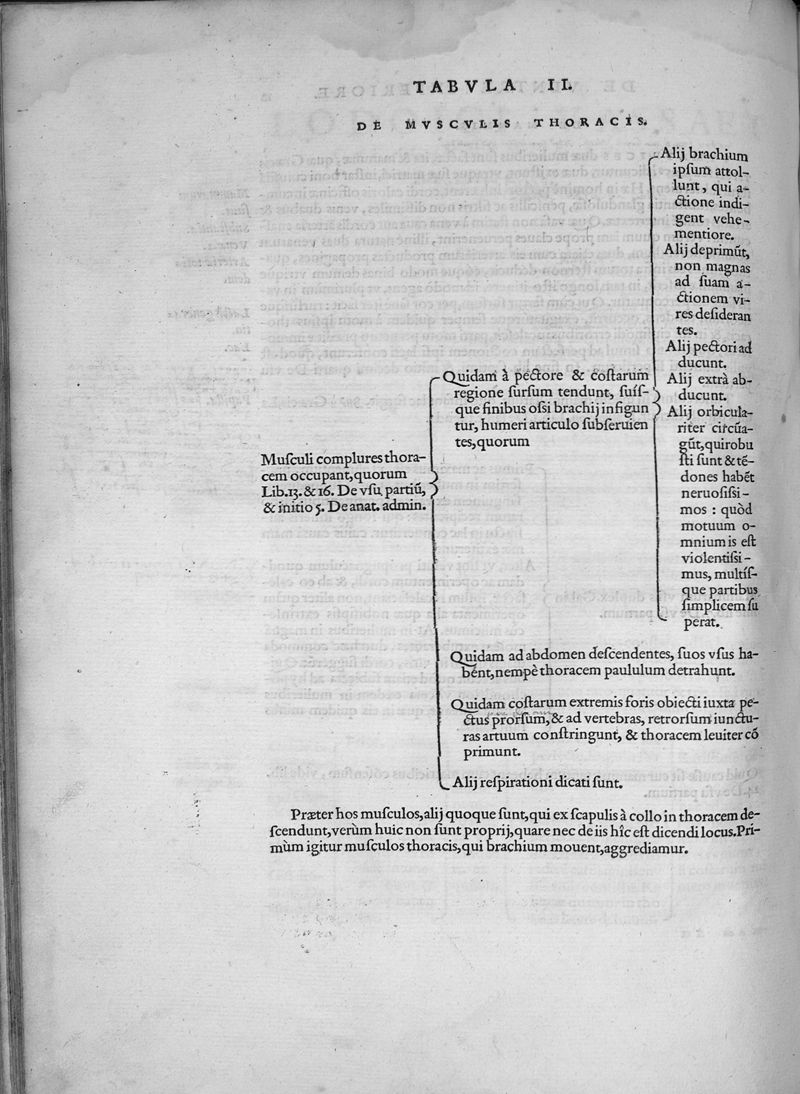 TABVLA II.
DE MVSCVLIS THORACIS.
Musculi complures thora-
cem occupant, quorum
Lib.13. & 16. De vsu partiū,
& initio 5. De anat. admin.
Quidam à pectore & costarum
regione sursum tendunt, suis-
que finibus ossi brachij infigun
tur, humeri articulo subseruien
tes, quorum
Alij brachium
ipsum attol-
lunt, qui a-
ctione indi-
gent vehe-
mentiore.
Alij deprimūt,
non magnas
ad suam a-
ctionem vi-
res desideran
tes.
Alij pectori ad
ducunt.
Alij extrà ab-
ducunt.
Alij orbicula-
riter circūa-
gūt, qui robu
sti sunt & tē-
dones habēt
neruosissi-
mos : quòd
motuum o-
mnium is est
violentissi-
mus, multís-
que partibus
simplicem su
perat.
Quidam ad abdomen descendentes, suos vsus ha-
bēnt, nempè thoracem paululum detrahunt.
Quidam costarum extremis foris obiecti iuxta pe-
ctus prorsum, & ad vertebras, retrorsum iunctu-
ras artuum constringunt, & thoracem leuiter cō
primunt.
Alij respirationi dicati sunt.
Præter hos musculos, alij quoque sunt, qui ex scapulis à collo in thoracem de-
scendunt, verùm huic non sunt proprij, quare nec de iis hîc est dicendi locus. Pri-
mùm igitur musculos thoracis, qui brachium mouent, aggrediamur.